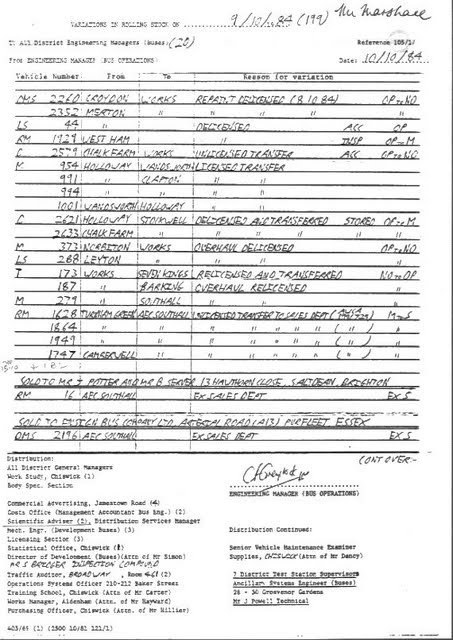 VARIATIONS IN ROLLING STOCK ON 9/10/84 (199) Mr Marshall
To All District Engineering Managers (Buses) (20) Reference 105/1/
From ENGINEERING MANAGER (BUS OPERATIONS) Date: 10/10/84
Vehicle Number From To Reason for variation
DMS 2260 CROYDON WORKS REPAINT DELICENSED (8.10.84) OP to NO
2352 MERTON " " " "
LS 44 " DELICENSED ACC OP
RM 1929 WEST HAM " INSP OP to M
C 2579 CHALK FARM WORKS UNLICENSED TRANSFER ACC OP to NO
M 954 HOLLOWAY WANDSWORTH LICENSED TRANSFER
991 " CLAPTON " "
994 " " " "
1001 WANDSWORTH HOLLOWAY " "
C 2621 HOLLOWAY STOCKWELL DELICENSED AND TRANSFERRED STORED OP to M
2633 CHALK FARM " " " " "
M 373 NORBITON WORKS OVERHAUL DELICENSED OP to NO
LS 288 LEYTON " " " "
T 173 WORKS SEVEN KINGS RELICENSED AND TRANSFERRED NO to OP
187 " BARKING OVERHAUL RELICENSED "
M 279 " SOUTHALL " " "
RM 1628 TURNHAM GREEN AEC SOUTHALL UNLICENSED TRANSFER TO SALES DEPT M to S
1864 " " " " " " ( " ) "
1949 " " " " " " ( " ) "
1747 CAMBERWELL " " " " " ( " ) "
SOLD TO MR J POTTER AND MR B SERVER 13 HAWTHORN CLOSE, SALTDEAN, BRIGHTON
RM 16 AEC SOUTHALL EX SALES DEPT EX S
SOLD TO ENSIGN BUS COMPANY LTD, ARTERIAL ROAD (A13) PURFLEET, ESSEX
DMS 2196 AEC SOUTHALL EX SALES DEPT EX S
CONT OVER-
Distribution:
All District General Managers
Work Study, Chiswick (1)
Body Spec. Section
ENGINEERING MANAGER (BUS OPERATIONS)
Commercial Advertising, Jamestown Road (4)
Costs Office (Management Accountant Bus Eng.) (2)
Scientific Adviser (2), Distribution Services Manager
Mech. Engr. (Development Buses) (3) Distribution Continued:
Licensing Section (3)
Statistical Office, Chiswick (1) Senior Vehicle Maintenance Examiner
Director of Development (Buses)(Attn of Mr Simon) Supplies, CHISWICK (Attn of Mr Dancy)
MR S BRIDGER INSPECTION COMPOUND
Traffic Auditor, BROADWAY, Room 461 (2) 7 District Test Station Supervisors
Operations Systems Officer 210-212 Baker Street Ancillary Systems Engineer (Buses)
Training School, Chiswick (Attn of Mr Carter) 28 - 30 Grosvenor Gardens
Works Manager, Aldenham (Attn of Mr Hayward) Mr J Powell Technical
Purchasing Officer, Chiswick (Attn of Mr Hillier)
403/69 (1) (2500 10/81 121/1)